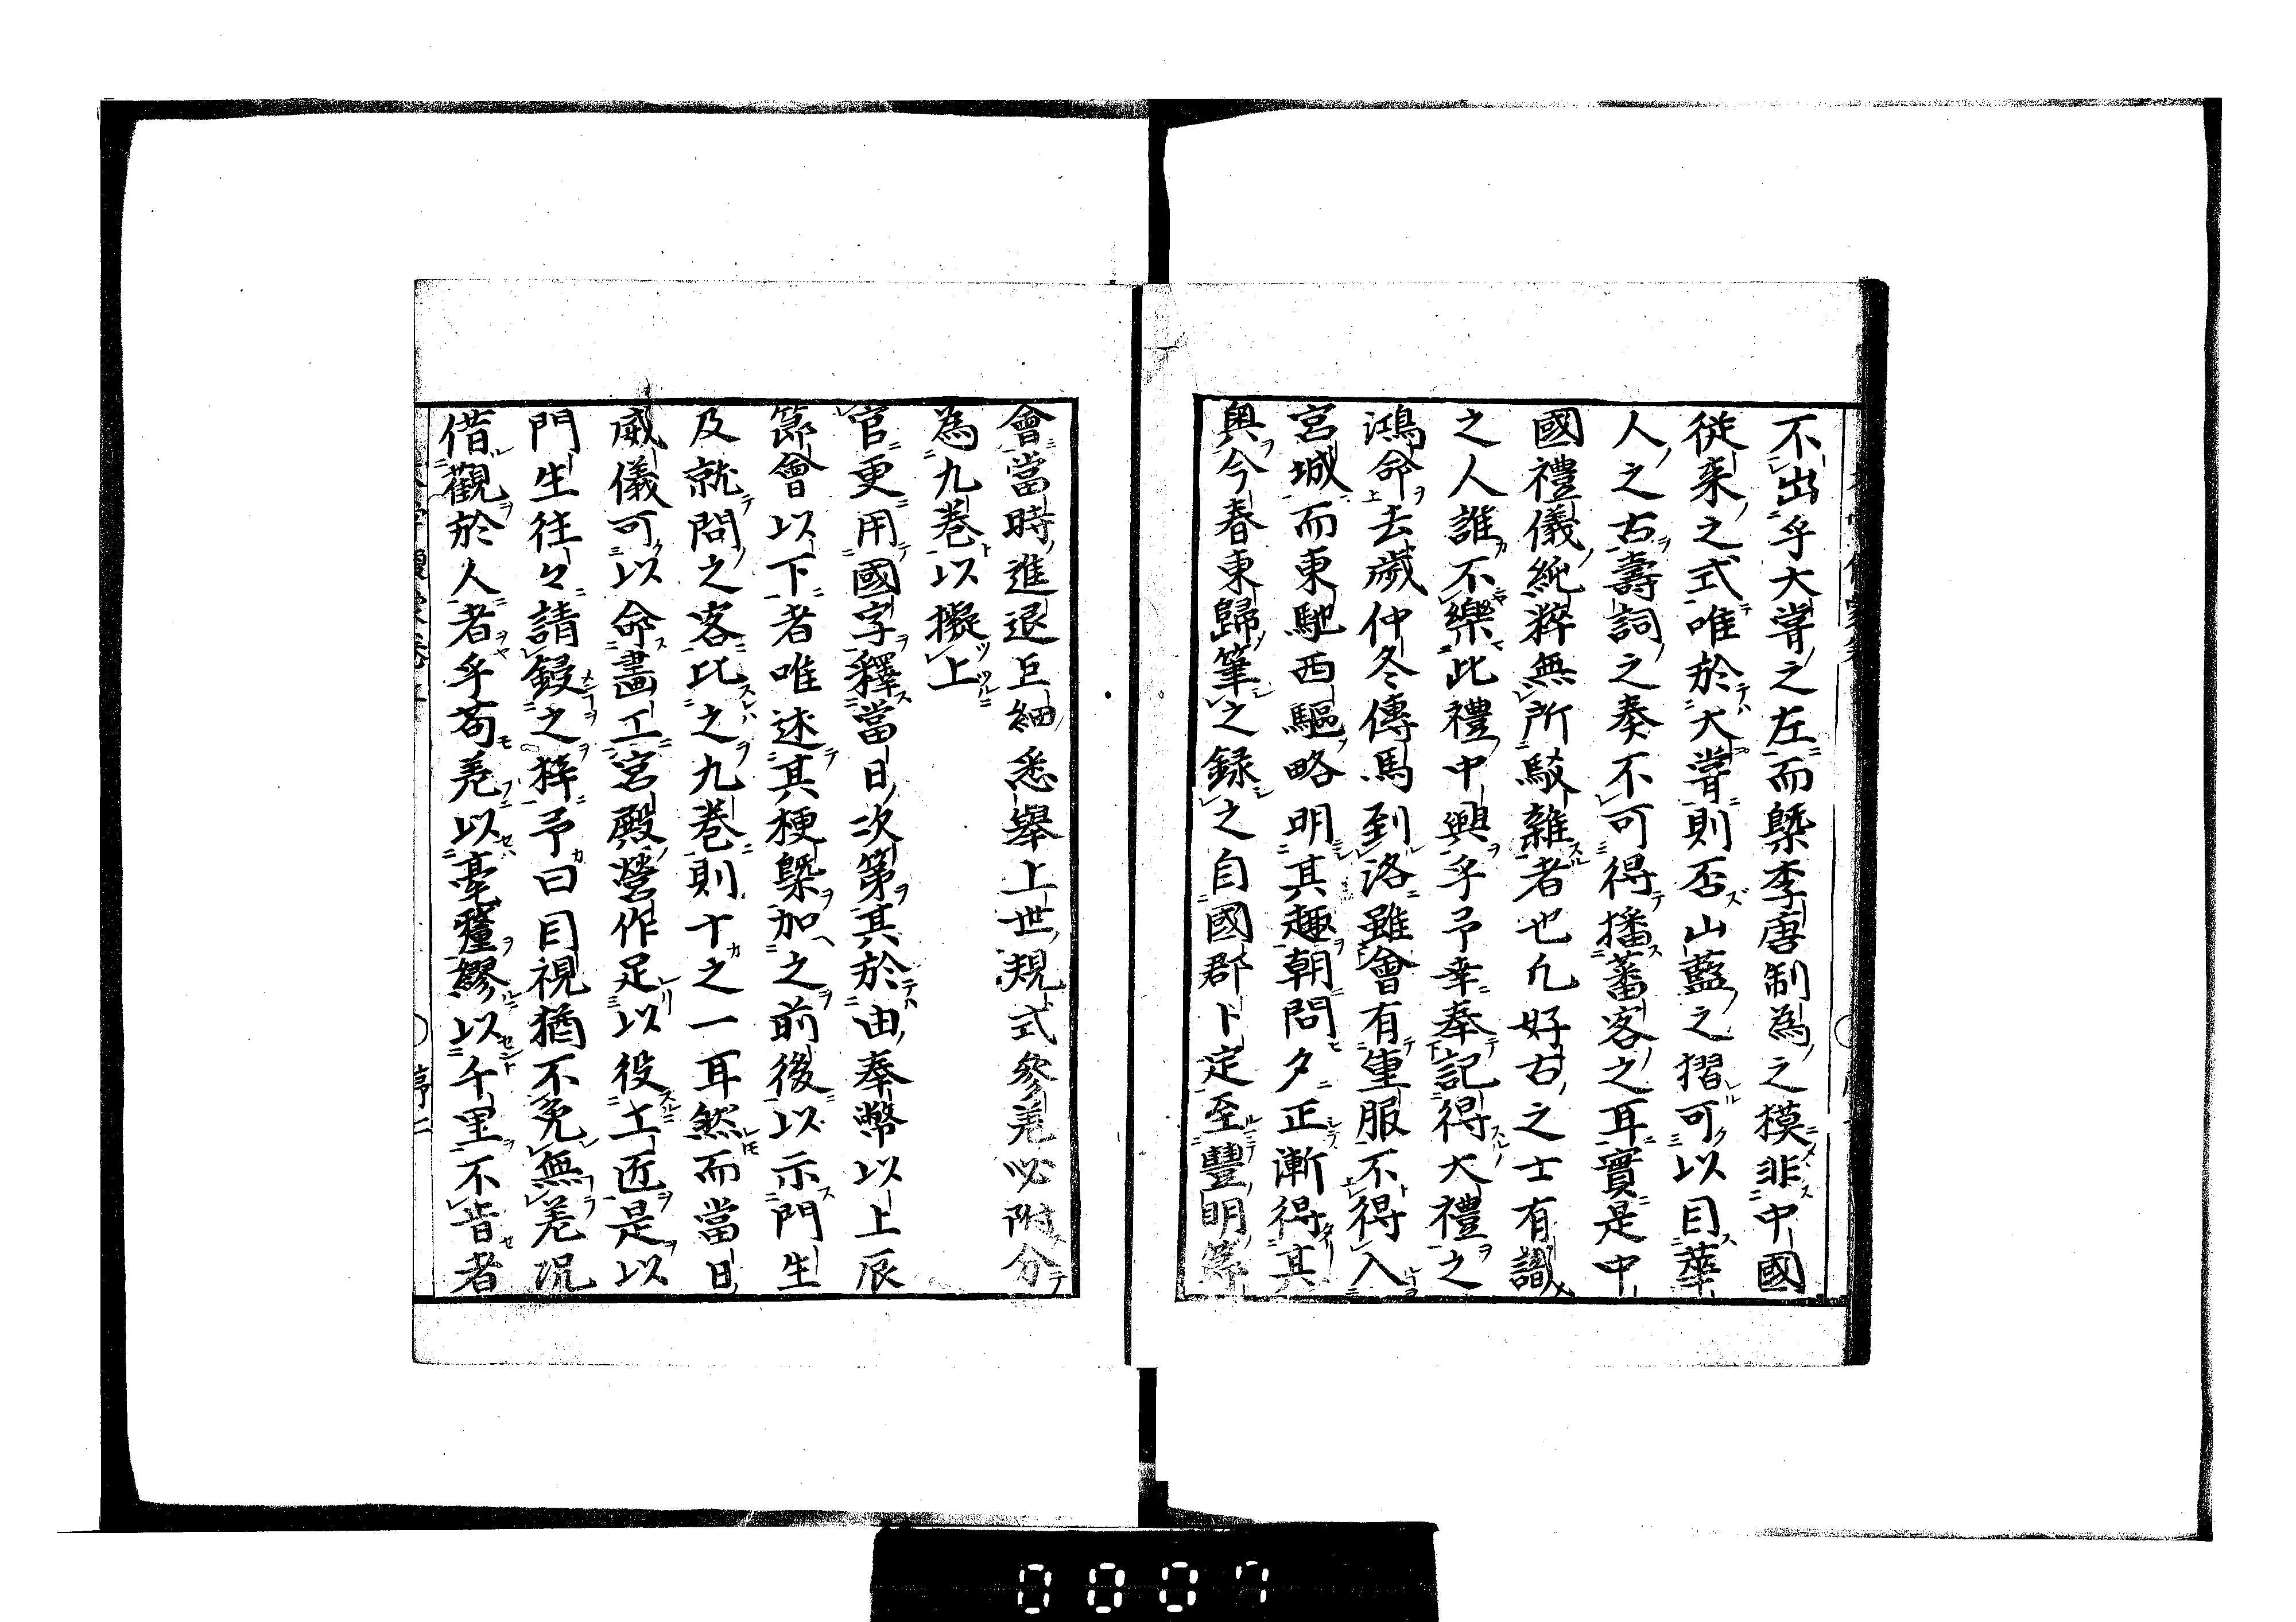 不出乎大甞之左而槩李唐制為之模非中國
從来之式唯於大甞則否山藍之摺可以目華
人之古壽詞之奏不可得播蕃客之耳實是中
國禮儀純粹無所駁雜者也凢好古之士有識
之人誰不樂此禮中興乎予幸奉記得大禮之
鴻命去歲仲冬傳馬到洛雖會有重服不得入
宮城而東馳西驅略明其趣朝問夕正漸得其
奧今春東歸筆之録之自國郡卜定至豐明節
會當時進退巨細悉舉上世規式參差必附分
為九巻以擬上
官更用國字釋當日次第其於由奉幣以上辰
節會以下者唯述其梗槩加之前後以示門生
及就問之客比之九巻則十之一耳然而當日
威儀可以命畫工宮殿營作足以役土匠是以
門生往々請鋟之梓予曰目視猶不免無差况
借觀於人者乎苟差以毫釐繆以千里不肯者